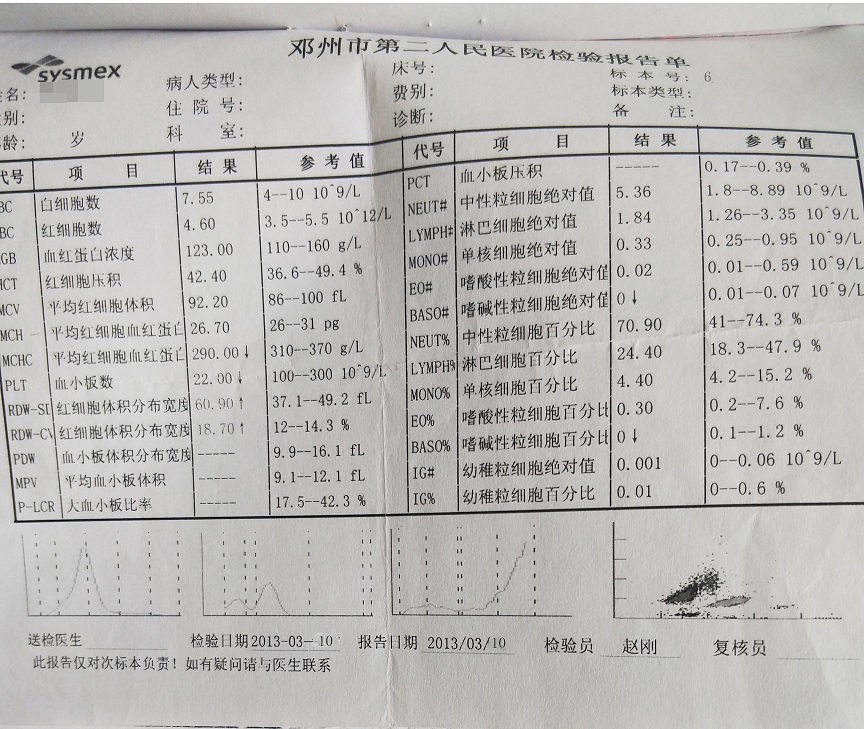 邓州市第二人民医院检验报告单
sysmex
姓名: 病人类型: 床号: 标本号: 6
别: 住院号: 费别: 标本类型:
龄: 岁 科室: 诊断: 备注:
代号 项目 结果 参考值 代号 项目 结果 参考值
BC 白细胞数 7.55 4--10 10^9/L PCT 血小板压积 ----- 0.17--0.39 %
BC 红细胞数 4.60 3.5--5.5 10^12/L NEUT# 中性粒细胞绝对值 5.36 1.8--8.89 10^9/L
GB 血红蛋白浓度 123.00 110--160 g/L LYMPH# 淋巴细胞绝对值 1.84 1.26--3.35 10^9/L
HCT 红细胞压积 42.40 36.6--49.4 % MONO# 单核细胞绝对值 0.33 0.25--0.95 10^9/L
MCV 平均红细胞体积 92.20 86--100 fL EO# 嗜酸性粒细胞绝对值 0.02 0.01--0.59 10^9/L
MCH 平均红细胞血红蛋白 26.70 26--31 pg BASO# 嗜碱性粒细胞绝对值 0↓ 0.01--0.07 10^9/L
MCHC 平均红细胞血红蛋白 290.00↓ 310--370 g/L NEUT% 中性粒细胞百分比 70.90 41--74.3 %
PLT 血小板数 22.00↓ 100--300 10^9/L LYMPH% 淋巴细胞百分比 24.40 18.3--47.9 %
RDW-SD 红细胞体积分布宽度 60.90↑ 37.1--49.2 fL MONO% 单核细胞百分比 4.40 4.2--15.2 %
RDW-CV 红细胞体积分布宽度 18.70↑ 12--14.3 % EO% 嗜酸性粒细胞百分比 0.30 0.2--7.6 %
PDW 血小板体积分布宽度 ----- 9.9--16.1 fL BASO% 嗜碱性粒细胞百分比 0↓ 0.1--1.2 %
MPV 平均血小板体积 ----- 9.1--12.1 fL IG# 幼稚粒细胞绝对值 0.001 0--0.06 10^9/L
P-LCR 大血小板比率 ----- 17.5--42.3 % IG% 幼稚粒细胞百分比 0.01 0--0.6 %
送检医生 检验日期 2013-03-10 报告日期 2013/03/10 检验员 赵刚 复核员
此报告仅对次标本负责! 如有疑问请与医生联系